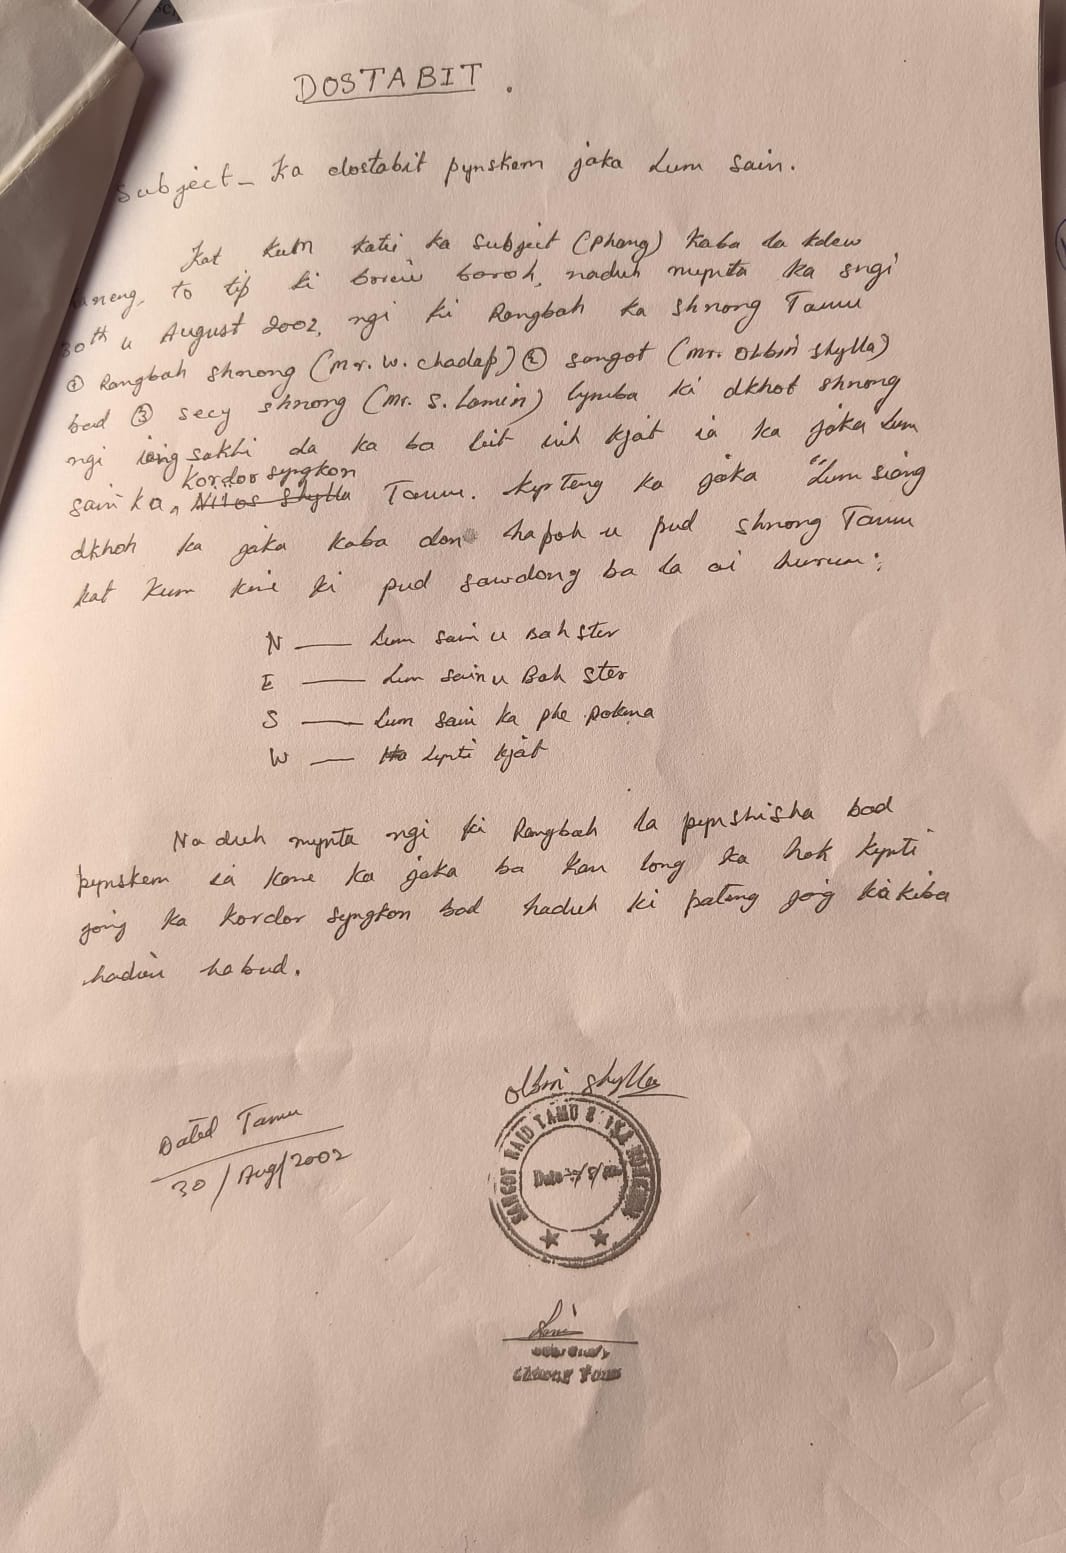 DOSTABIT.
Subject - Ka dostabit pynskem jaka Lum sain.
Kat kum katei ka subject (phang) kaba la kdew
haneng, to tip ki boriew baroh, naduh mynta ka sngi
30th u August 2002, ngi ki Rangbah ka shnong Tamu
① Rangbah shnong (Mr. W. Chadap) ② sangot (Mr. Olbin Shylla)
bad ③ secy shnong (Mr. S. Lamin) lymba ki dkhot shnong
ngi iaing sakhi da ka ba leit iuh kjat ia ka jaka Lum
kordor syngkon
sain ka Nilos Shylla Tamu. Kyrteng ka jaka "Lum siang
dkhoh ka jaka kaba don hapoh u pud shnong Tamu
kat kum kine ki pud sawdong ba la ai harum:
N — Lum sain u Bah ster
E — Lum sain u Bah ster
S — Lum sain ka phe pokma
W — Lynti kjat
Naduh mynta ngi ki Rangbah la pynshisha bad
pynskem ia kane ka jaka ba kan long ka hok kynti
jong ka kordor syngkon bad haduh ki pateng jong ki kiba
hadien habud.
Olbin Shylla
Dated Tamu
30/Aug/2002
SANGOT RAID TAMU &
Date